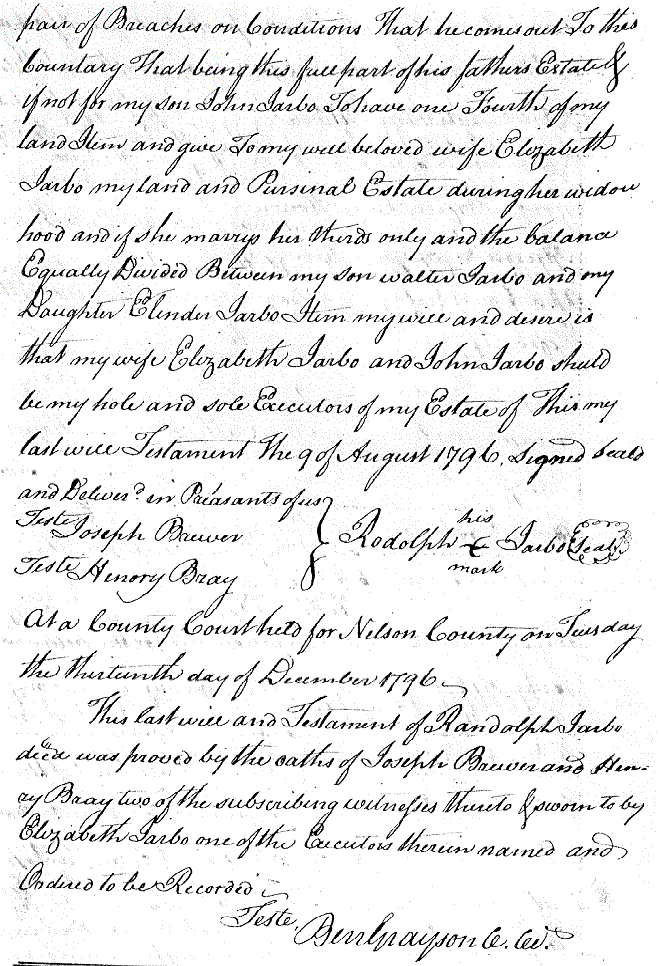 pair of Breaches on Conditions That he comes out To this
Countary That being the full part of his fathers Estate &
if not for my son John Jarbo To have one Fourth of my
land Item and give To my well beloved wife Elizabeth
Jarbo my land and Pursinal Estate during her widow
hood and if she marrys her thirds only and the balance
Equally Divided Between my son walter Jarbo and my
Daughter Elender Jarbo Item my will and desere is
that my wife Elizabeth Jarbo and John Jarbo shuld
be my hole and sole Executors of my Estate of This my
last will Testament the 9 of August 1796. Signed Seald
and Deliverd in Preasants of us
Teste Joseph Brewer
Teste Henory Bray
Rodolph his mark Jarbo Seal
At a County Court held for Nelson County on Tuesday
the thirteenth day of December 1796
This last will and Testament of Randolph Jarbo
decd was proved by the oaths of Joseph Brewer and Hen-
ry Bray two of the subscribing witnesses thereto & sworn to by
Elizabeth Jarbo one of the Executors therein named and
Ordered to be Recorded
Teste
Ben Grayson C. Ct.